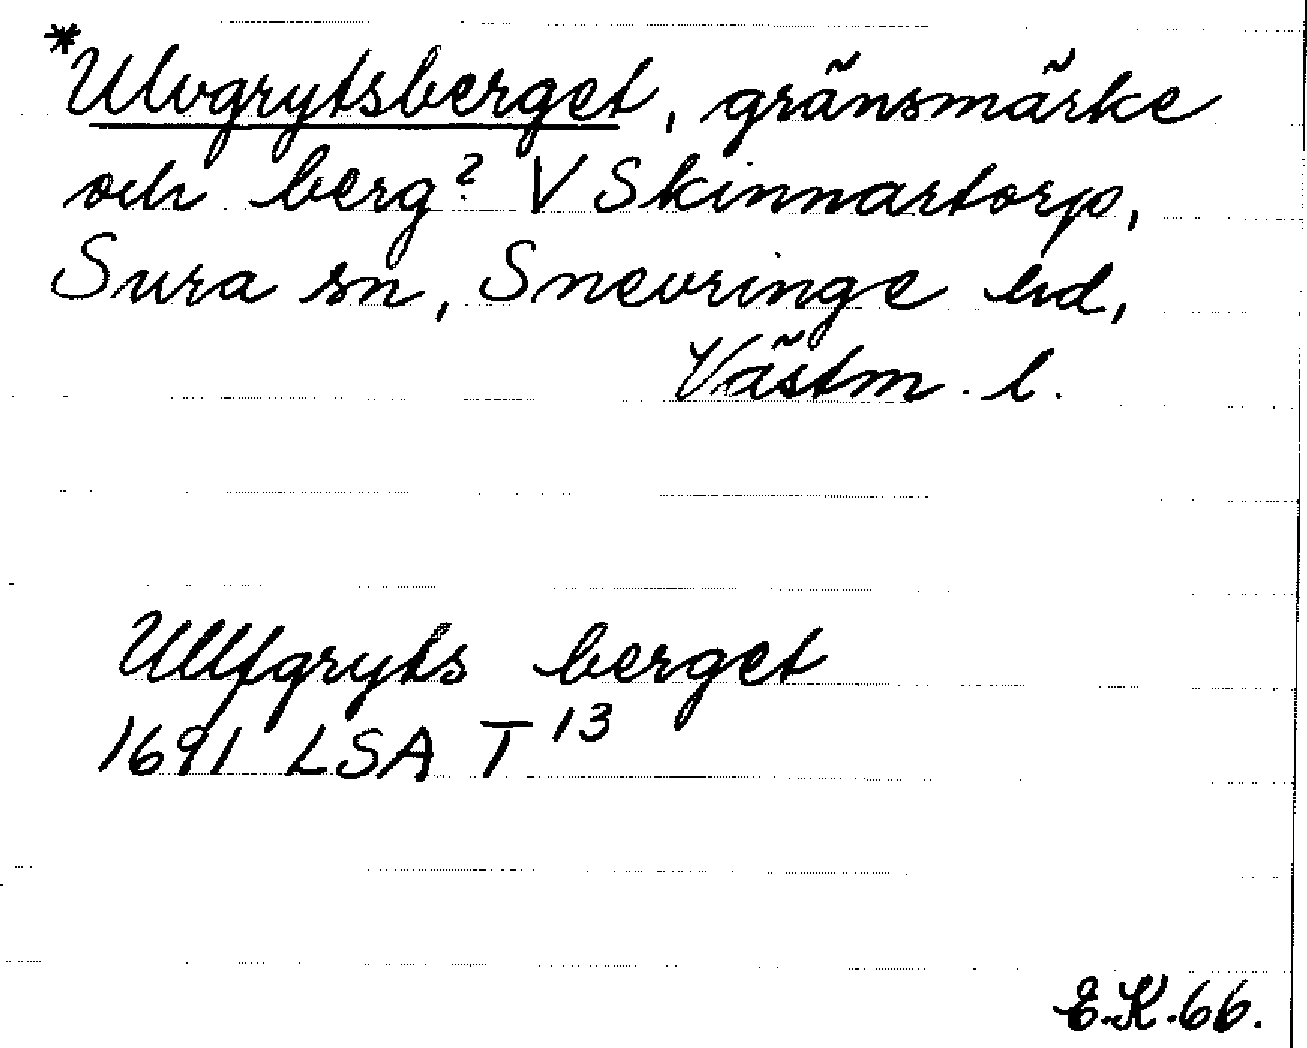 *Ulvgrytsberget, gränsmärke
och berg? V Skinnartorp,
Sura sn, Snevringe hd,
Västm. l.
Ullfgryts berget
1691 LSA T 13
E.K.66.